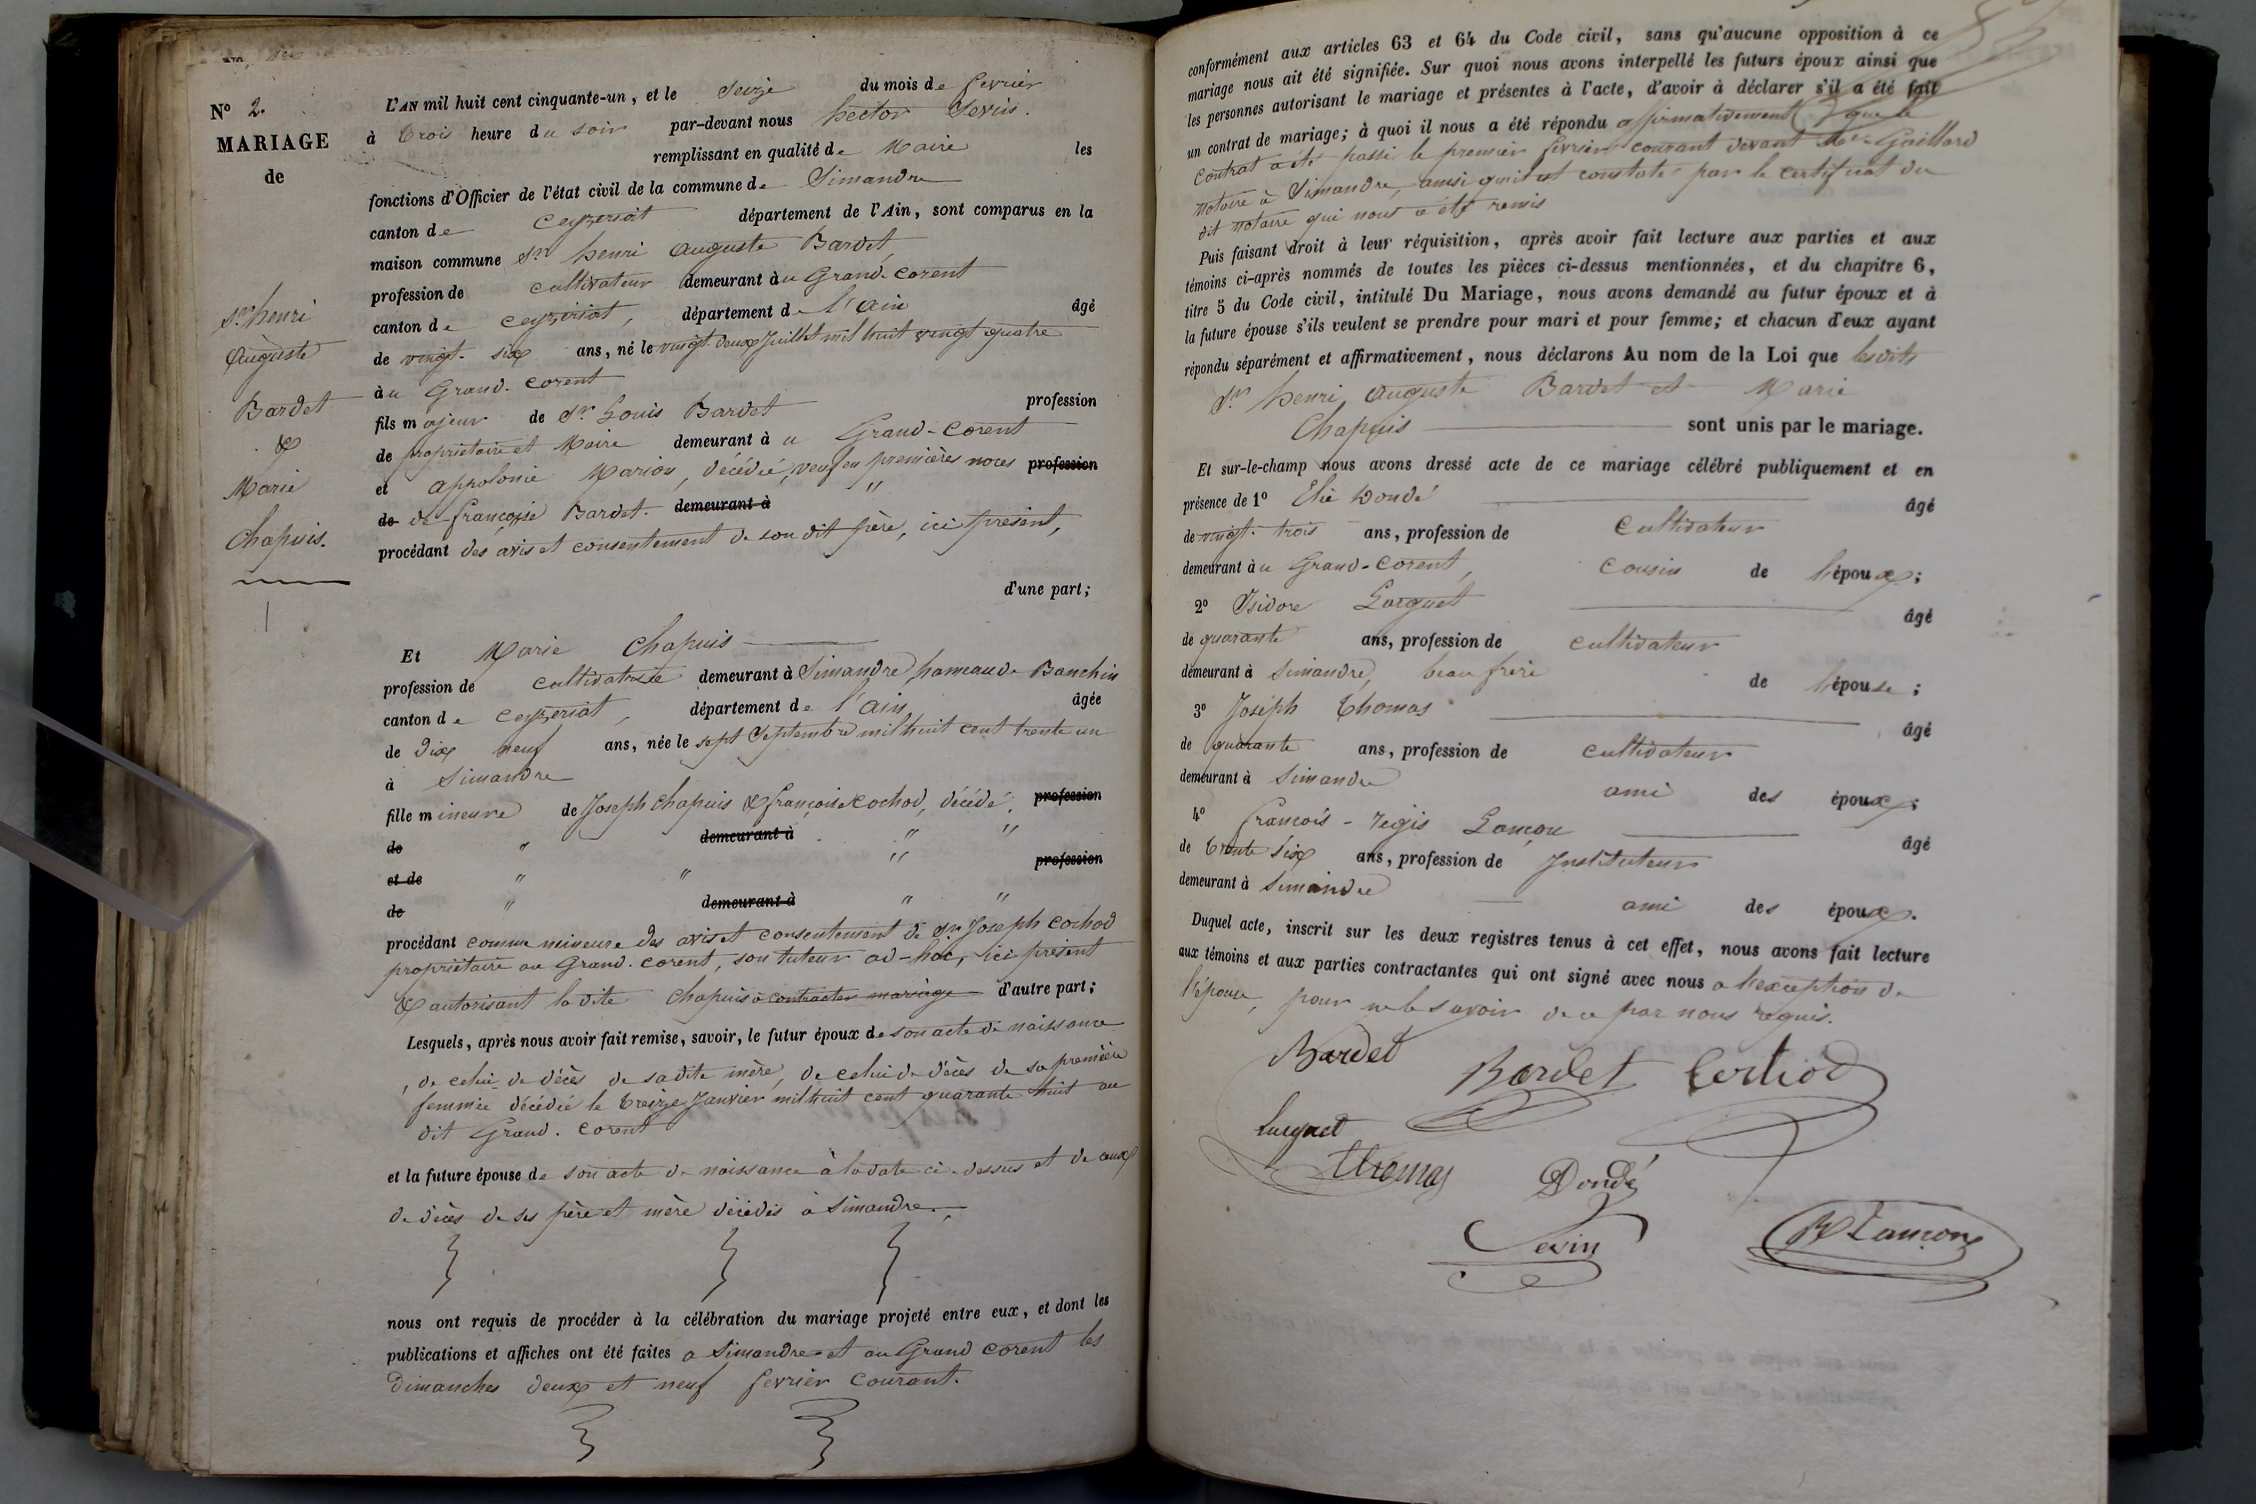 N° 2.
MARIAGE
de
Sr henri
Auguste
Bardet
&
Marie
Chapuis.
L'AN mil huit cent cinquante-un, et le Seize du mois de fevrier
à trois heure du soir par-devant nous hector
remplissant en qualité de Maire les
fonctions d'Officier de l'état civil de la commune de Simandre
canton de Ceyzeriat département de l'Ain, sont comparus en la
maison commune Sr henri auguste Bardet
profession de cultivateur demeurant à u Grand-Corent
canton de ceyzeriat, département de l'ain âgé
de vingt-six ans, né le vingt-deux Juillet mil huit vingt quatre
à u Grand-Corent
fils majeur de Sr Louis Bardet profession
de propriétaire et Maire demeurant à u Grand-Corent
et appolonie Marion, décédée, veuf en premières noces profession
de de françoise Bardet. demeurant à "
procédant des avis et consentement de son dit père, ici présent,
d'une part;
Et Marie Chapuis
profession de cultivatrice demeurant à Simandre, hameau de Banchin
canton de Ceyzeriat, département de l'ain âgée
de dix neuf ans, née le sept Septembre mil huit cent trente un
à Simandre
fille mineure de Joseph Chapuis & françoise Cochod, décédé, profession
de " demeurant à " "
et de " " " profession
de " demeurant à " "
procédant comme mineure des avis et consentement de Sr Joseph Cochod
propriétaire au Grand-Corent, son tuteur ad-hoc, ici présent
& autorisant la dite Chapuis à contracter mariage d'autre part;
Lesquels, après nous avoir fait remise, savoir, le futur époux de son acte de naissance
, de celui de décès de sa dite mère, de celui de décès de sa première
femme décédée le treize Janvier mil huit cent quarante huit au
dit Grand-Corent
et la future épouse de son acte de naissance à la date ci-dessus et de ceux
de décès de ses père et mère décédés à Simandre.
nous ont requis de procéder à la célébration du mariage projeté entre eux, et dont les
publications et affiches ont été faites a Simandre et au Grand Corent les
Dimanches deux et neuf fevrier courant.
conformément aux articles 63 et 64 du Code civil, sans qu'aucune opposition à ce
mariage nous ait été signifiée. Sur quoi nous avons interpellé les futurs époux ainsi que
les personnes autorisant le mariage et présentes à l'acte, d'avoir à déclarer s'il a été fait
un contrat de mariage; à quoi il nous a été répondu affirmativement & que le
contrat a été passé le premier fevrier courant devant Me Gaillard
notaire à Simandre, ainsi qu'il est constaté par le certificat du
dit notaire qui nous a été remis
Puis faisant droit à leur réquisition, après avoir fait lecture aux parties et aux
témoins ci-après nommés de toutes les pièces ci-dessus mentionnées, et du chapitre 6,
titre 5 du Code civil, intitulé Du Mariage, nous avons demandé au futur époux et à
la future épouse s'ils veulent se prendre pour mari et pour femme; et chacun d'eux ayant
répondu séparément et affirmativement, nous déclarons Au nom de la Loi que lesdits
Sr henri auguste Bardet et Marie
Chapuis sont unis par le mariage.
Et sur-le-champ nous avons dressé acte de ce mariage célébré publiquement et en
présence de 1° Elie Dondé âgé
de vingt-trois ans, profession de cultivateur
demeurant à u Grand-Corent, cousin de l'époux;
2° Isidore Larguet âgé
de quarante ans, profession de cultivateur
demeurant à Simandre, beau frère de l'épouse;
3° Joseph Thomas âgé
de quarante ans, profession de cultivateur
demeurant à Simandre ami des époux;
4° françois-régis Lançon âgé
de trente six ans, profession de Instituteur
demeurant à Simandre ami des époux.
Duquel acte, inscrit sur les deux registres tenus à cet effet, nous avons fait lecture
aux témoins et aux parties contractantes qui ont signé avec nous a l'exception de
l'épouse, pour ne le savoir de ce par nous requis.
Bardet
Bardet
Thomas
Dondé
R Lançon